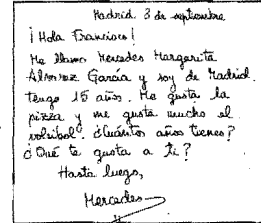 Madrid 3 de septiembre
¡Hola Francisco!
Me llamo Mercedes Margarita
Álvarez García y soy de Madrid.
Tengo 15 años. Me gusta la
pizza y me gusta mucho el
voleibol. ¿Cuántos años tienes?
¿Qué te gusta a ti?
Hasta luego,
Mercedes